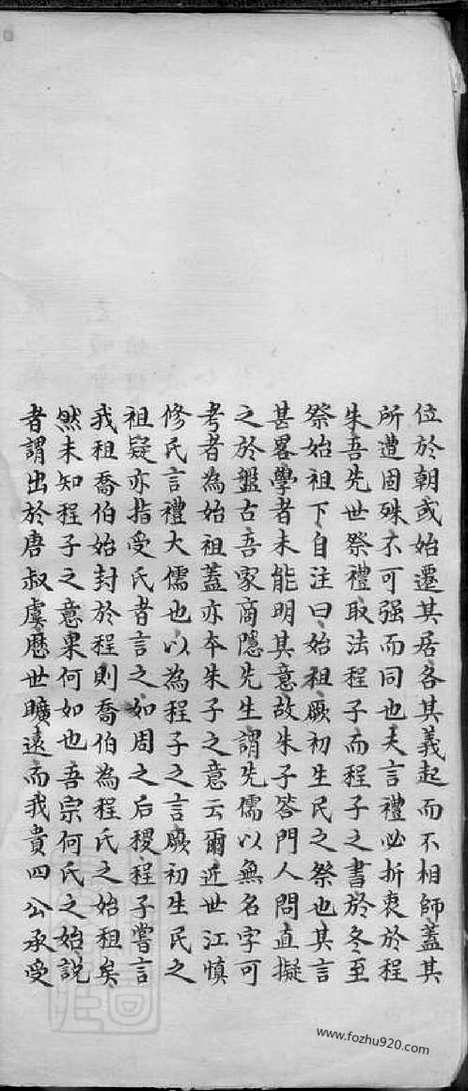 位於朝或始遷其居各其義起而不相師蓋其
所遭固殊不可强而同也夫言禮必折衷於程
朱吾先世祭禮取法程子而程子之書於冬至
祭始祖下自注曰始祖厥初生民之祭也其言
甚畧學者未能明其意故朱子答門人問直擬
之於盤古吾家商隱先生謂先儒以無名字可
考者為始祖蓋亦本朱子之意云爾近世江慎
修氏言禮大儒也以為程子之言厥初生民之
祖疑亦指受氏者言之如周之后稷程子嘗言
我祖喬伯始封於程則喬伯為程氏之始祖矣
然未知程子之意果何如也吾宗何氏之始說
者謂出於唐叔虞歷世曠遠而我貴四公承受
www.fozhu920.com